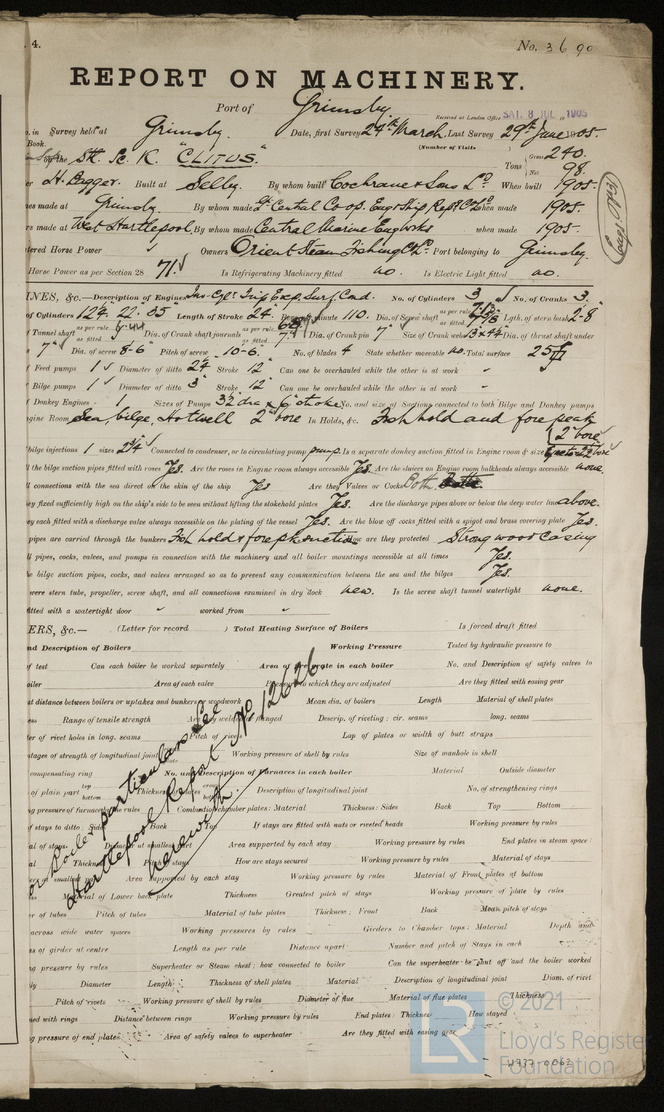 4.
No. 3690
REPORT ON MACHINERY.
Port of Grimsby
Received at London Office SAT. 8 JUL 1905
in Survey held at Grimsby. Date, first Survey 24th March. Last Survey 29th June 1905.
Book.
(Number of Visits
on the Stl. Sc. K. "CLITUS." Tons Gross 240. Net 98.
H. Bigger. Built at Selby. By whom built Cochrane & Sons Ld. When built 1905.
nes made at Grimsby. By whom made Gt Central Co-op. Eng & Ship Rep Co Ld when made 1905.
rs made at West Hartlepool, By whom made Central Marine Eng Works when made 1905.
tered Horse Power Owners Orient Steam Fishing Co Ld. Port belonging to Grimsby.
Horse Power as per Section 28 71. Is Refrigerating Machinery fitted no. Is Electric Light fitted no.
INES, &c.—Description of Engines Inv. Cylr Trip Exp. Surf. Cond. No. of Cylinders 3 No. of Cranks 3.
of Cylinders 12¼. 22. 35 Length of Stroke 24. Revs per minute 110. Dia. of Screw shaft as per rule as fitted Lgth. of stern bush 2-8
Tunnel shaft as per rule as fitted Dia. of Crank shaft journals as per rule as fitted Dia. of Crank pin 7" Size of Crank webs 13 x 4¼ Dia. of thrust shaft under
7" Dia. of screw 8-6 Pitch of screw 10-6. No. of blades 4 State whether moveable no. Total surface 25
of Feed pumps 1 Diameter of ditto 2¼ Stroke 12 Can one be overhauled while the other is at work "
Bilge pumps 1 Diameter of ditto 3 Stroke 12 Can one be overhauled while the other is at work "
of Donkey Engines 1 Sizes of Pumps 3½ dia x 6 stroke No. and size of Suctions connected to both Bilge and Donkey pumps
gine Room Sea, bilge, Hotwell 2" bore In Holds, &c. Fish hold and fore peak
2" bore
bilge injections 1 sizes 2¾ Connected to condenser, or to circulating pump pump. Is a separate donkey suction fitted in Engine room & size
ll the bilge suction pipes fitted with roses Yes. Are the roses in Engine room always accessible Yes. Are the sluices on Engine room bulkheads always accessible none.
ll connections with the sea direct on the skin of the ship Yes Are they Valves or Cocks Both
ey fixed sufficiently high on the ship's side to be seen without lifting the stokehold plates Yes. Are the discharge pipes above or below the deep water line above.
ey each fitted with a discharge valve always accessible on the plating of the vessel Yes. Are the blow off cocks fitted with a spigot and brass covering plate Yes.
pipes are carried through the bunkers Fish hold & forepk suction How are they protected Strong wood casing
ll pipes, cocks, valves, and pumps in connection with the machinery and all boiler mountings accessible at all times Yes.
he bilge suction pipes, cocks, and valves arranged so as to prevent any communication between the sea and the bilges Yes.
were stern tube, propeller, screw shaft, and all connections examined in dry dock new. Is the screw shaft tunnel watertight none.
fitted with a watertight door " worked from "
ERS, &c.— (Letter for record ) Total Heating Surface of Boilers Is forced draft fitted
nd Description of Boilers Working Pressure Tested by hydraulic pressure to
of test Can each boiler be worked separately Area of fire grate in each boiler No. and Description of safety valves to
oiler Area of each valve Pressure to which they are adjusted Are they fitted with easing gear
st distance between boilers or uptakes and bunkers or woodwork Mean dia. of boilers Length Material of shell plates
ess Range of tensile strength Are they welded or flanged Descrip. of riveting: cir. seams long. seams
ter of rivet holes in long. seams Pitch of rivets Lap of plates or width of butt straps
ntages of strength of longitudinal joint Working pressure of shell by rules Size of manhole in shell
compensating ring No. and Description of Furnaces in each boiler Material Outside diameter
of plain part top bottom Thickness Description of longitudinal joint No. of strengthening rings
ng pressure of furnace Combustion chamber plates: Material Thickness: Sides Back Top Bottom
of stays to ditto: Sides Back Top If stays are fitted with nuts or riveted heads Working pressure by rules
al of stays Diameter at smallest part Area supported by each stay Working pressure by rules End plates in steam space:
al Thickness Pitch of stays How are stays secured Working pressure by rules Material of stays
er at smallest part Area supported by each stay Working pressure by rules Material of Front plates at bottom
ess Material of Lower back plate Thickness Greatest pitch of stays Working pressure of plate by rules
er of tubes Pitch of tubes Material of tube plates Thickness: Front Back Mean pitch of stays
across wide water spaces Working pressures by rules Girders to Chamber tops: Material Depth and
ss of girder at centre Length as per rule Distance apart Number and pitch of Stays in each
ng pressure by rules Superheater or Steam chest; how connected to boiler Can the superheater be shut off and the boiler worked
ly Diameter Length Thickness of shell plates Material Description of longitudinal joint Diam. of rivet
Pitch of rivets Working pressure of shell by rules Diameter of flue Material of flue plates Thickness
ned with rings Distance between rings Working pressure by rules End plates: Thickness How stayed
ng pressure of end plates Area of safety valves to superheater Are they fitted with easing gear
For Boiler particulars see
Hartlepool Report No 12626
herewith.
© 2021
Lloyd's Register
Foundation
W933-0062